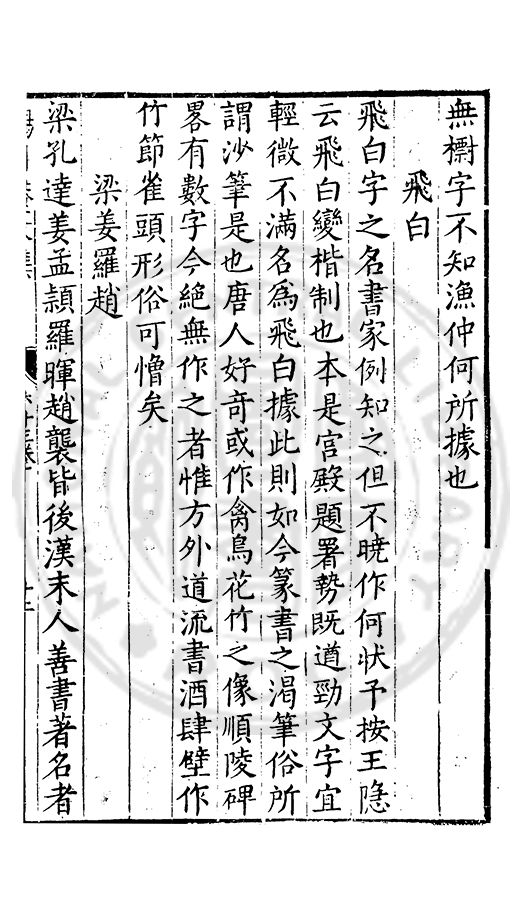 無櫥字不知漁仲何所據也
飛白
飛白字之名書家例知之但不曉作何狀予按王隱
云飛白變楷制也本是宮殿題署勢既遒勁文字宜
輕微不滿名爲飛白據此則如今篆書之渴筆俗所
謂沙筆是也唐人好奇或作禽鳥花竹之像順陵碑
畧有數字今絕無作之者惟方外道流書酒肆壁作
竹節雀頭形俗可憎矣
梁姜羅趙
梁孔達姜孟頴羅暉趙襲皆後漢末人善書著名者